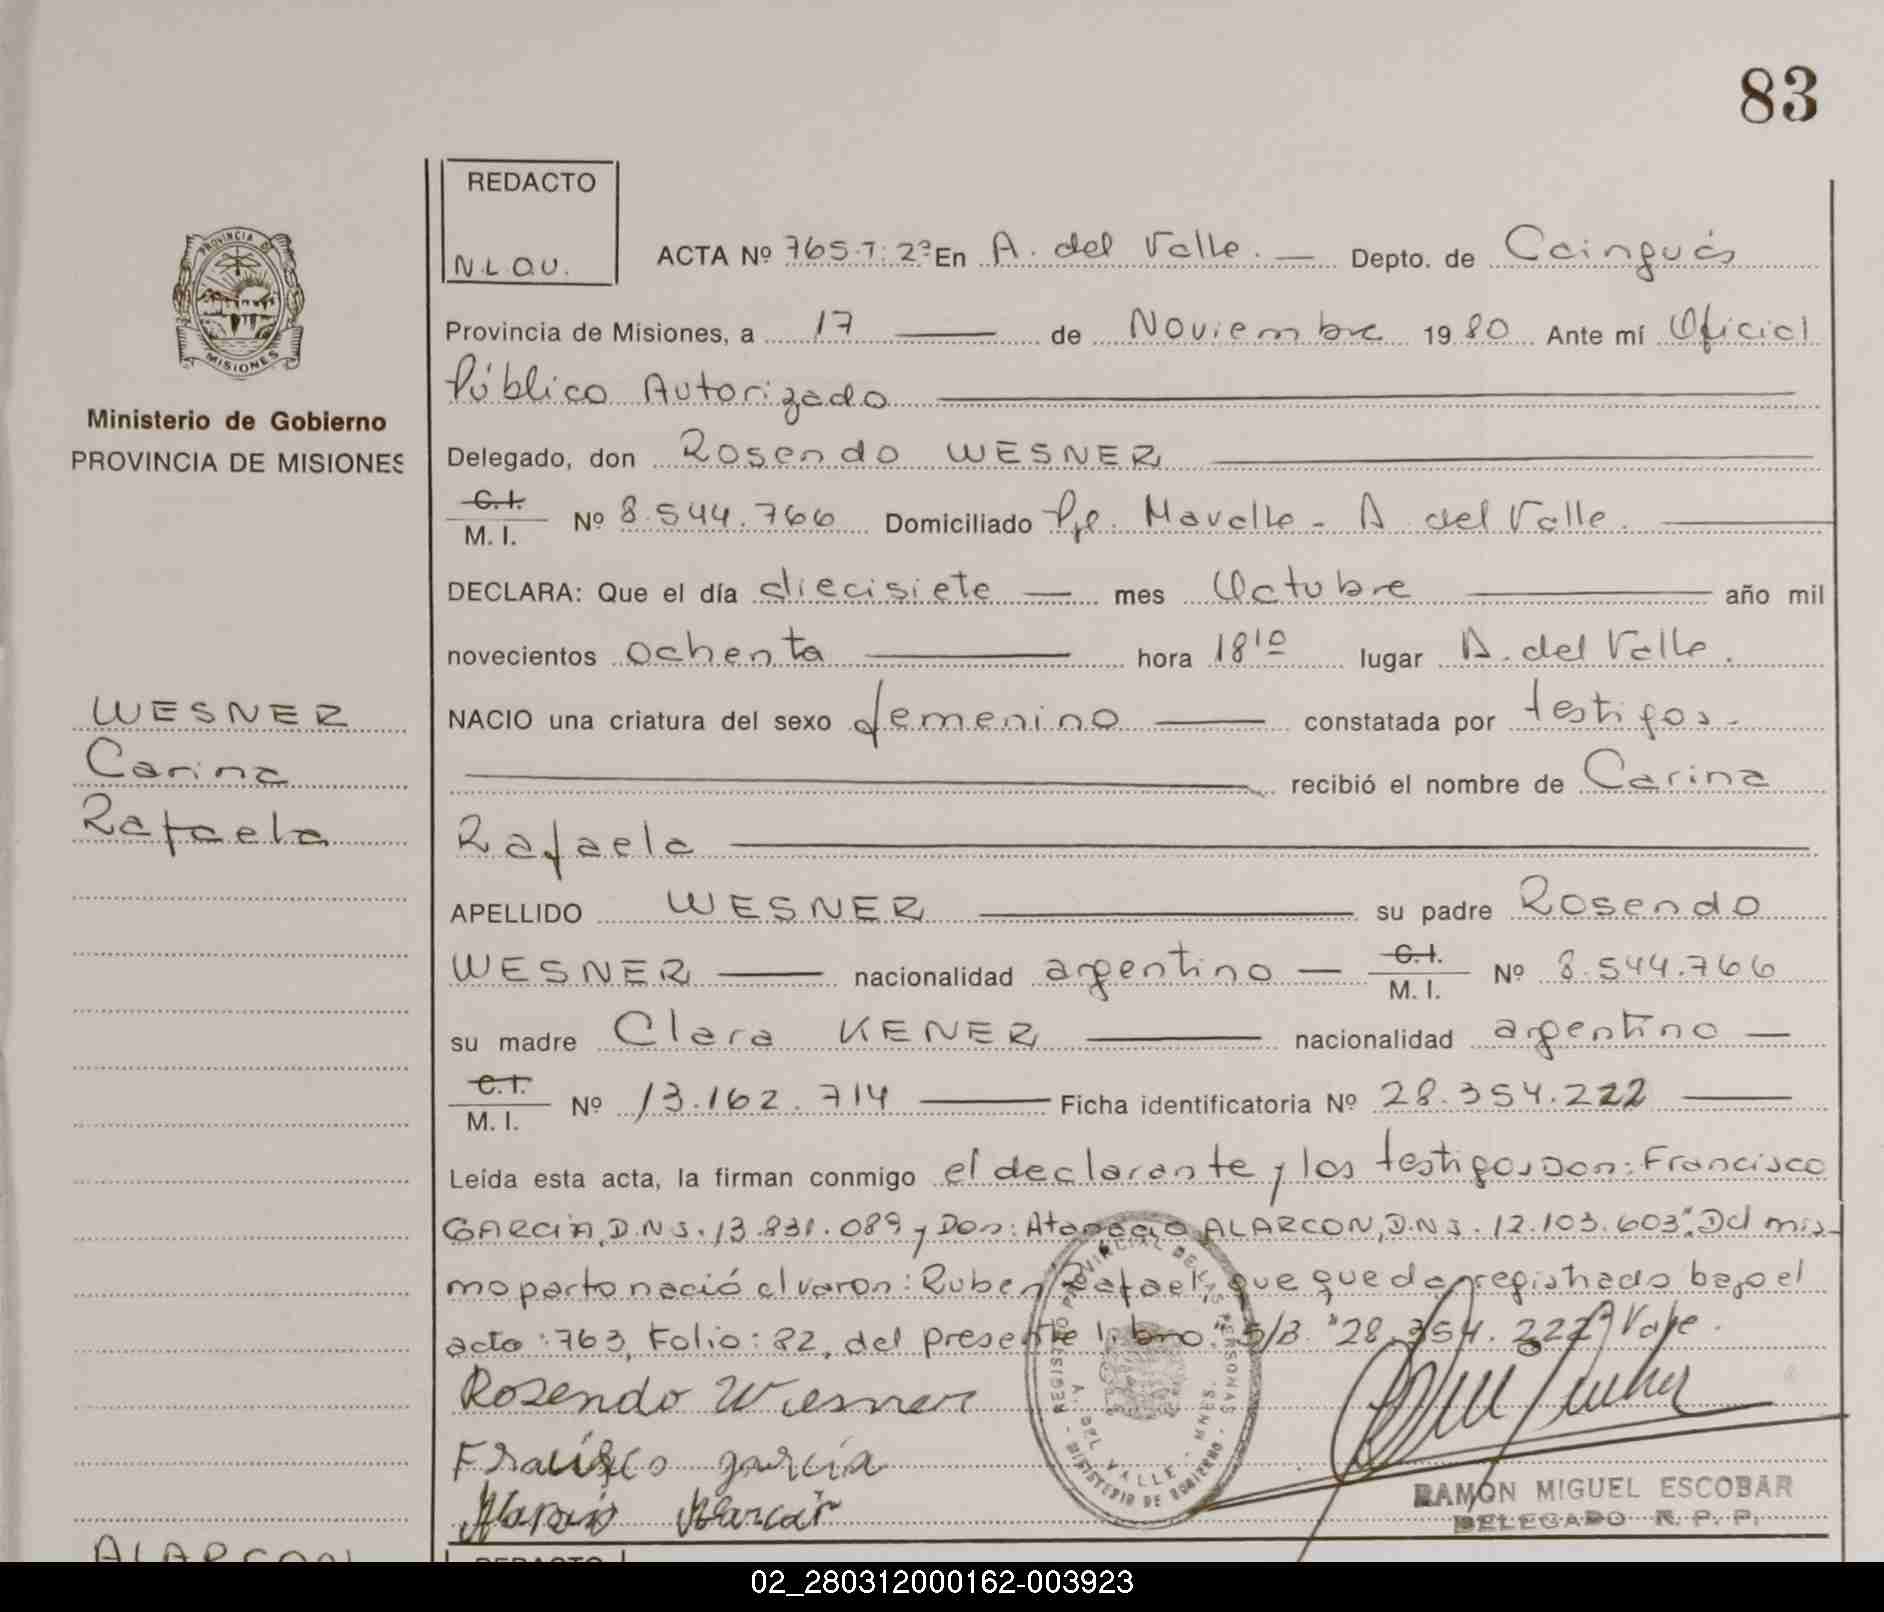 83
REDACTO
N.L.O.U.
ACTA Nº 765-T: 2º En A. del Valle. — Depto. de Cainguás
PROVINCIA DE MISIONES
Provincia de Misiones, a 17 — de Noviembre 1980 Ante mí Oficial
Público Autorizado
Ministerio de Gobierno
PROVINCIA DE MISIONES
Delegado, don Rosendo WESNER
C.I. M.I. Nº 8.544.766 Domiciliado Pje. Mavalle - A. del Valle.
DECLARA: Que el día diecisiete — mes Octubre — año mil
novecientos ochenta — hora 18¹⁰ lugar A. del Valle.
WESNER
Carina
Rafaela
NACIO una criatura del sexo femenino — constatada por testigos.-
recibió el nombre de Carina
Rafaela
APELLIDO WESNER — su padre Rosendo
WESNER — nacionalidad argentino — C.I. M.I. Nº 8.544.766
su madre Clara KENER — nacionalidad argentino —
C.I. M.I. Nº 13.162.714 — Ficha identificatoria Nº 28.354.222 —
Leída esta acta, la firman conmigo el declarante y los testigos Don: Francisco
GARCIA, D.N.I. 13.831.089 y Don: Atanacio ALARCON, D.N.I. 12.103.603". Del mis-
mo parto nació el varon: Ruben Rafael, que queda registrado bajo el
acta: 763, Folio: 82, del presente libro. S/B. "28.354.222" Vale.
Rosendo Wesner
Francisco garcia
Alarcon
REGISTRO PROVINCIAL DE LAS PERSONAS
A. DEL VALLE - MNES.
MINISTERIO DE GOBIERNO
RAMON MIGUEL ESCOBAR
DELEGADO R. P. P.
ALARCON
REDACTO
02_280312000162-003923